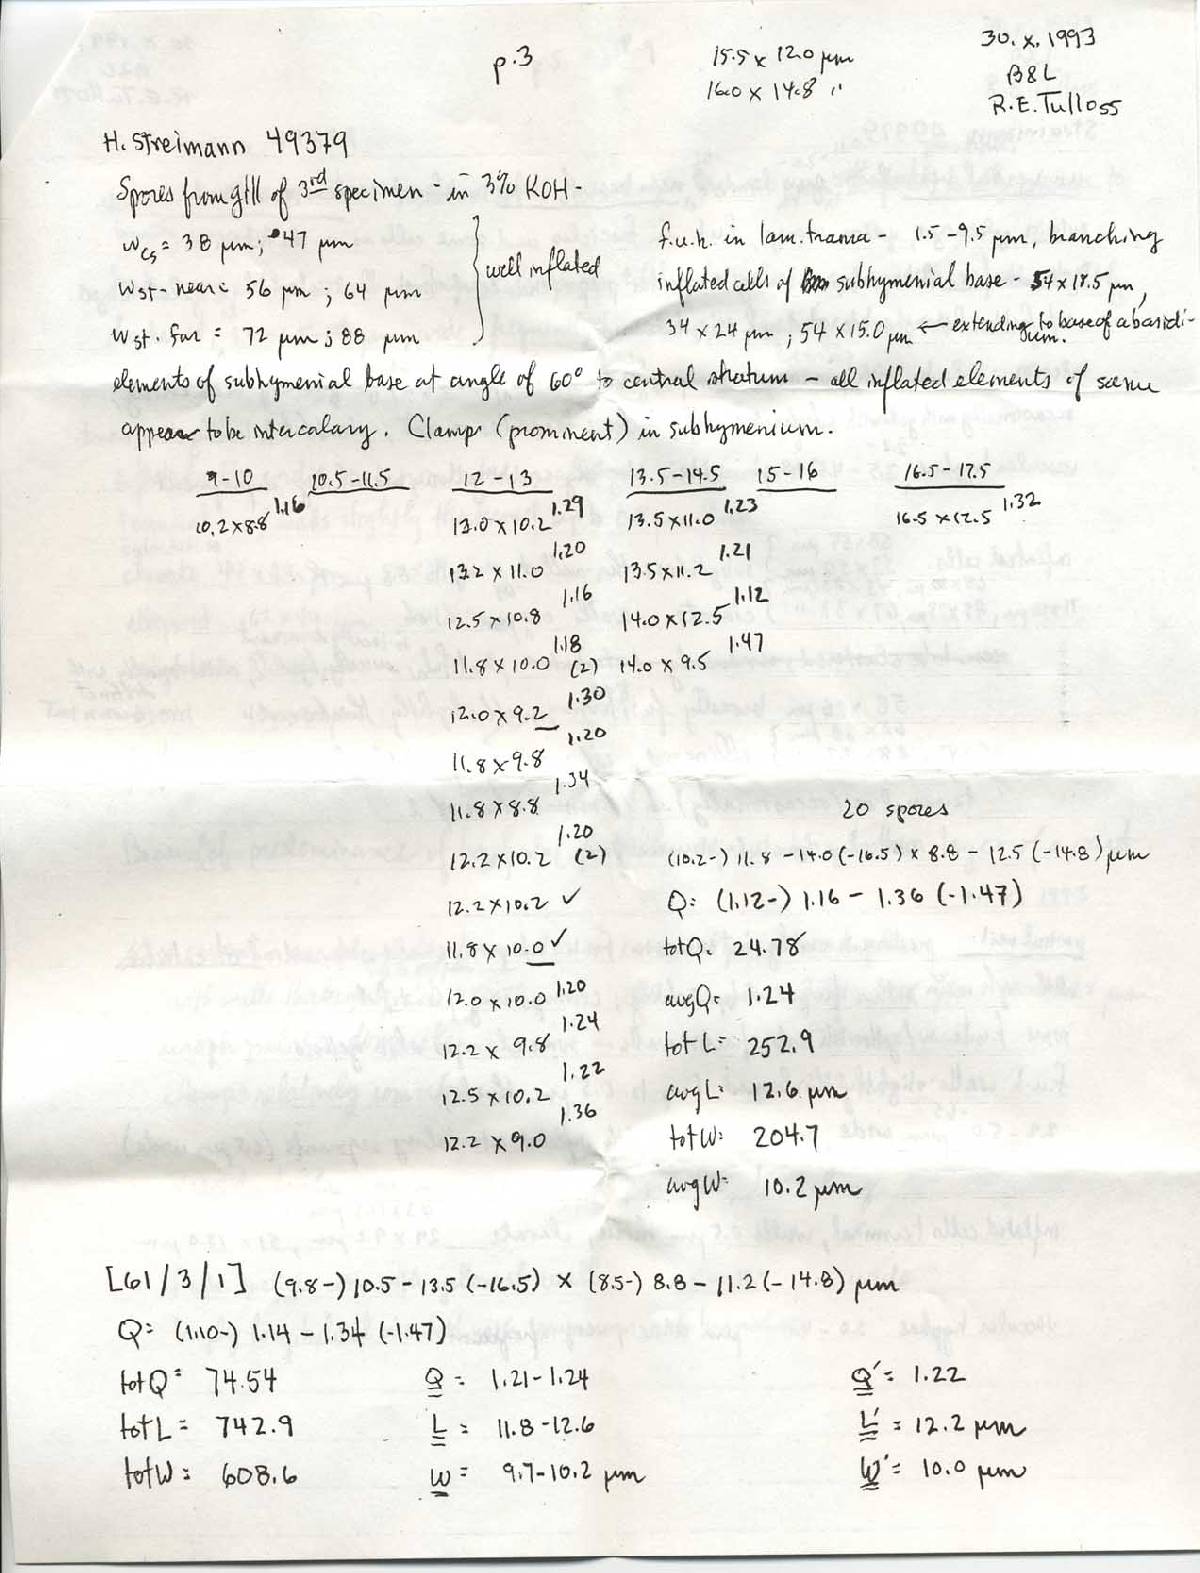 p.3
15.5 x 12.0 µm
16.0 x 14.8 "
30. x. 1993
B & L
R.E. Tulloss
H. Streimann 49379
Spores from gill of 3rd specimen - in 3% KOH -
wcs = 38 µm; 47 µm
wst-near = 56 µm; 64 µm
wst-far = 72 µm; 88 µm
well inflated
f.u.h. in lam. trama - 1.5-9.5 µm, branching
inflated cells of subhymenial base - 54 x 17.5 µm,
34 x 24 µm; 54 x 15.0 µm ← extending to base of a basidi-
um.
elements of subhymenial base at angle of 60° to central stratum - all inflated elements of same
appear to be intercalary. Clamps (prominent) in subhymenium.
9-10 10.5-11.5 12-13 13.5-14.5 15-16 16.5-17.5
10.2 x 8.8 1.16 13.0 x 10.2 1.29 13.5 x 11.0 1.23 16.5 x 12.5 1.32
13.2 x 11.0 1.20 13.5 x 11.2 1.21
12.5 x 10.8 1.16 14.0 x 12.5 1.12
11.8 x 10.0 1.18 (2) 14.0 x 9.5 1.47
12.0 x 9.2 1.30
11.8 x 9.8 1.20
11.8 x 8.8 1.34
12.2 x 10.2 1.20 (2)
12.2 x 10.2 ✓
11.8 x 10.0 ✓
12.0 x 10.0 1.20
12.2 x 9.8 1.24
12.5 x 10.2 1.22
12.2 x 9.0 1.36
20 spores
(10.2-) 11.8 - 14.0 (-16.5) x 8.8 - 12.5 (-14.8) µm
Q: (1.12-) 1.16 - 1.36 (-1.47)
totQ: 24.78
avgQ: 1.24
totL= 252.9
avgL: 12.6 µm
totW: 204.7
avgW= 10.2 µm
[61/3/1] (9.8-) 10.5 - 13.5 (-16.5) x (8.5-) 8.8 - 11.2 (-14.8) µm
Q: (1.10-) 1.14 - 1.34 (-1.47)
totQ= 74.54 Q = 1.21-1.24 Q' = 1.22
totL= 742.9 L = 11.8-12.6 L' = 12.2 µm
totW= 608.6 W = 9.7-10.2 µm W' = 10.0 µm